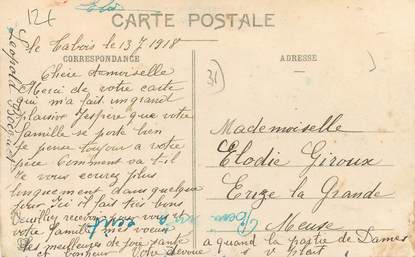 12€
CARTE POSTALE
le Cabois le 13 7 1918
CORRESPONDANCE
ADRESSE
31
Chère demoiselle
Merci de votre carte
qui m'a fait un grand
plaisir J'espère que votre
famille se porte bien
je pense toujour a votre
père Comment va t'il
Je vous ecurez plus
longuement dans quelque
jour Ici il fait très bon
Veuillez recevoir pour vous et
votre famille mes vœux
les meilleures de joie santé
et bonheur Votre dévoué
Léopold
Mademoiselle
Elodie Giroux
Erize la Grande
Meuse
a quand la partie de Dames
s v plait